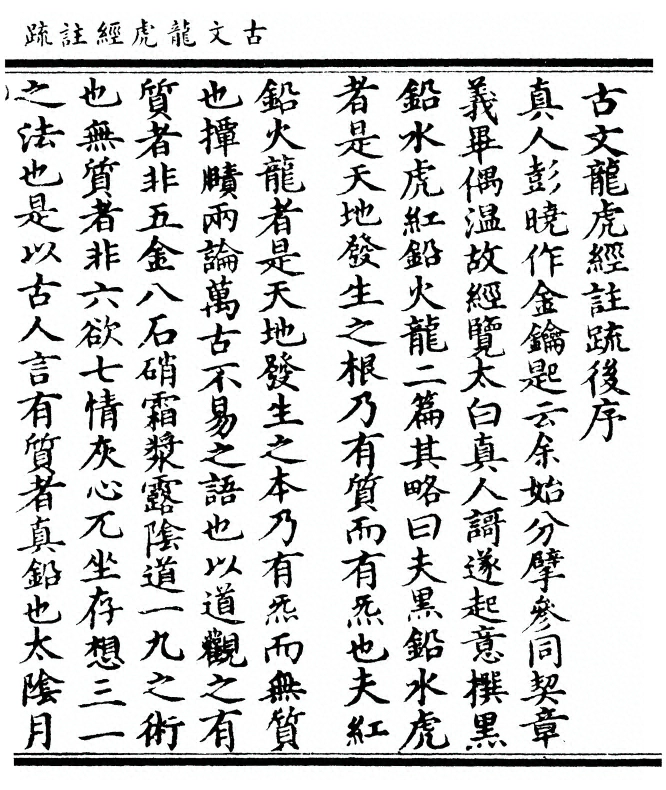 古文龍虎經註䟽
古文龍虎經註䟽後序
真人彭曉作金鑰匙云余始分擘參同契章
義畢偶温故經覽太白真人謌遂起意撰黑
鉛水虎紅鉛火龍二篇其略曰夫黑鉛水虎
者是天地發生之根乃有質而有炁也夫紅
鉛火龍者是天地發生之本乃有炁而無質
也撢賾兩論萬古不易之語也以道觀之有
質者非五金八石硝霜漿露陰道一九之術
也無質者非六欲七情灰心兀坐存想三一
之法也是以古人言有質者真鉛也太陰月